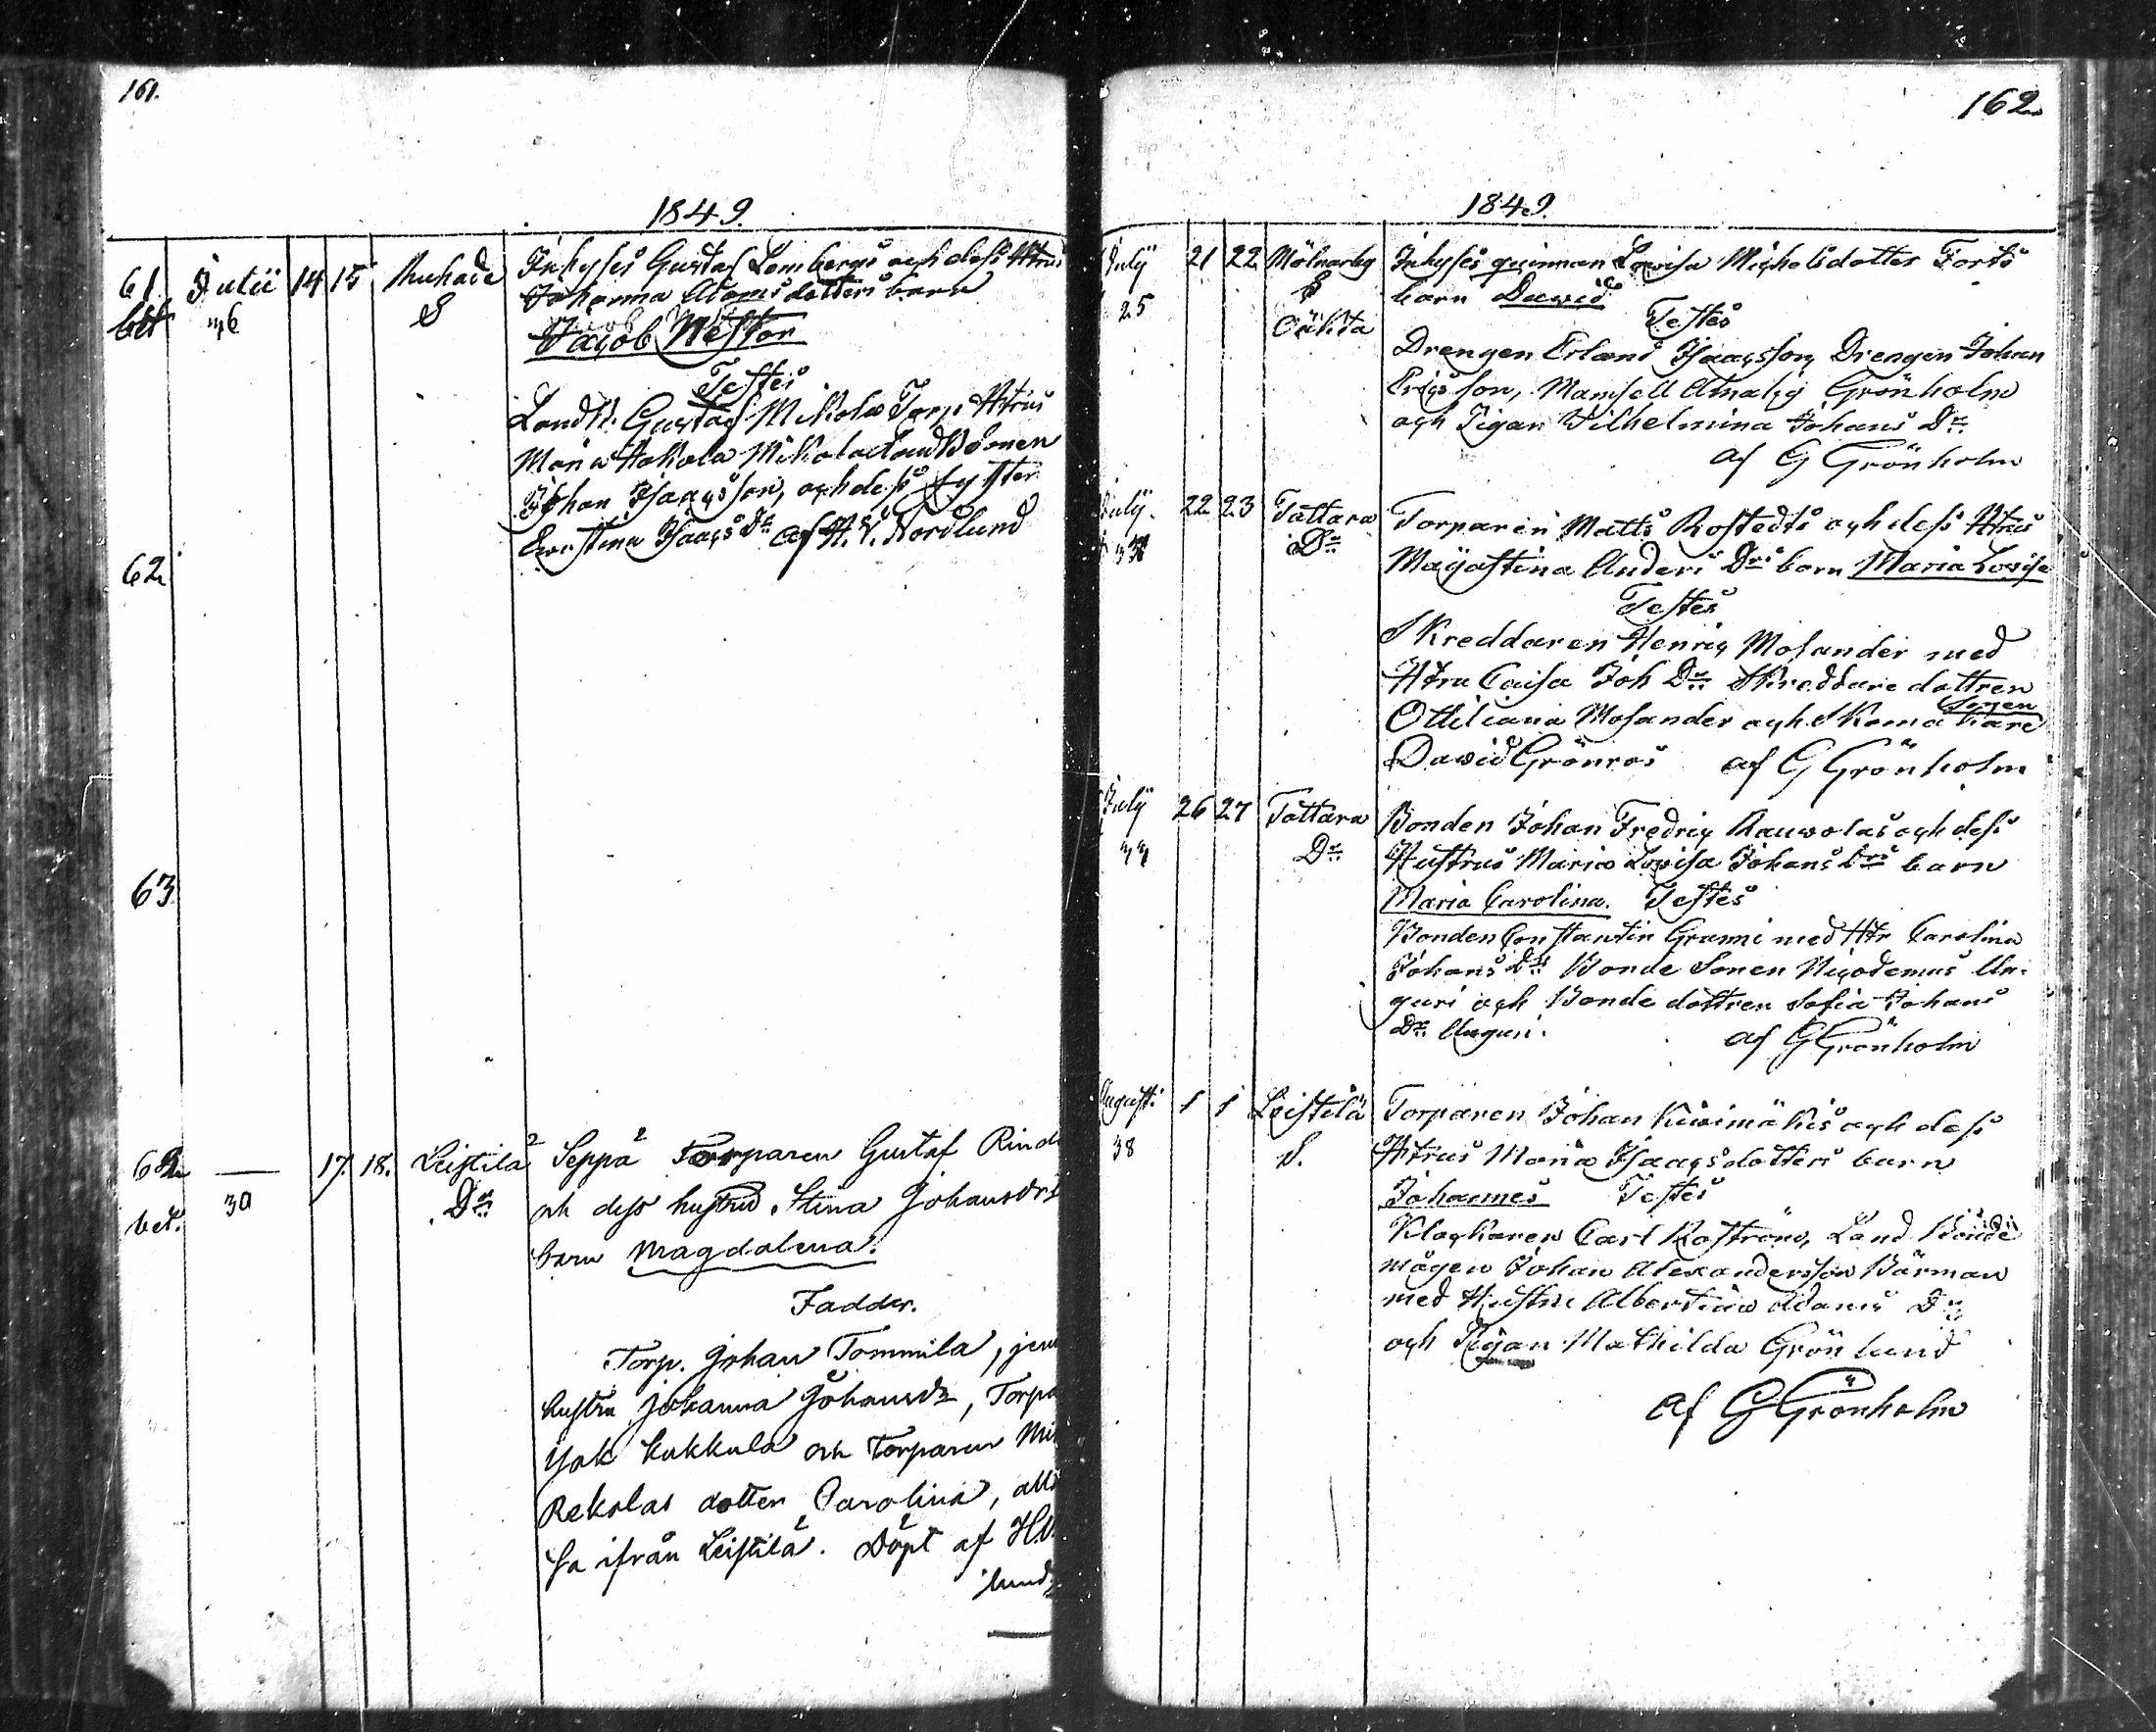 161.
1849.
61 Julii 14 15 Ruhade Inhyses Gustaf Lembergs och dess Htrus
bet 36 S Johanna Adamsdotters barn
Jacob Nestor
Testes
Landb. Gustaf Mikola Torp. Htrus
Maria Hakola Mikola Landbomen
Johan Isaacsson, och dess syster
Ernstina Isaacs Dr af H. V. Nordlund
62
63
bet. 30 17. 18. Leistilä Seppä Torparen Gustaf Rind
Dr och dess hustru Stina Johansdrs
barn Magdalena.
Faddr.
Torp. Johan Tommila, jem
hustru Johanna Johansdr, Torpa
Jak Kukkula och Torparen Mi
Rekolas dotter Carolina, alle
sa ifrån Leistilä. Döpt af H.V.
lund
162
1849.
July 21 22 Mölnarby Inhyses qvinnan Lovisa Michelsdotter Forts
25 S barn David
Testes
Drengen Erland Isaacsson, Drengen Johan
Ericsson, Mamsell Amalia Grönholm
och Pigan Vilhelmina Johans Dr
af G Grönholm
July 22 23 Tattara Torparen Matts Rostedts och dess Htrus
Dr Majastina Anders Drs barn Maria Lovisa
Testes
Skreddaren Henric Mosander med
Htru Caisa Joh Dr Skreddare dottren
Ottiliana Mosander och Skomakare
Sonen
David Grönros af G Grönholm
July 26 27 Tattara Bonden Johan Fredric Rauvolas och dess
Dr Hustrus Maria Lovisa Johans Drs barn
Maria Carolina. Testes
Bonden Constantin Granni med Htr Carolina
Johans Dr Bonde Sonen Nicodemus Un-
guri och Bonde dottren Sofia Johans
Dr Unguri.
af G Grönholm
Augusti 1 1 Leistilä Torparen Johan Kivimäkis och dess
38 S. Htrus Maria Isaacsdotters barn
Johannes Testes
Klockaren Carl Roström, Land Bonde
mågen Johan Alexandersson Bärman
med Hustru Albertina Adams Dr
och Pigan Mathilda Grönlund
af G Grönholm